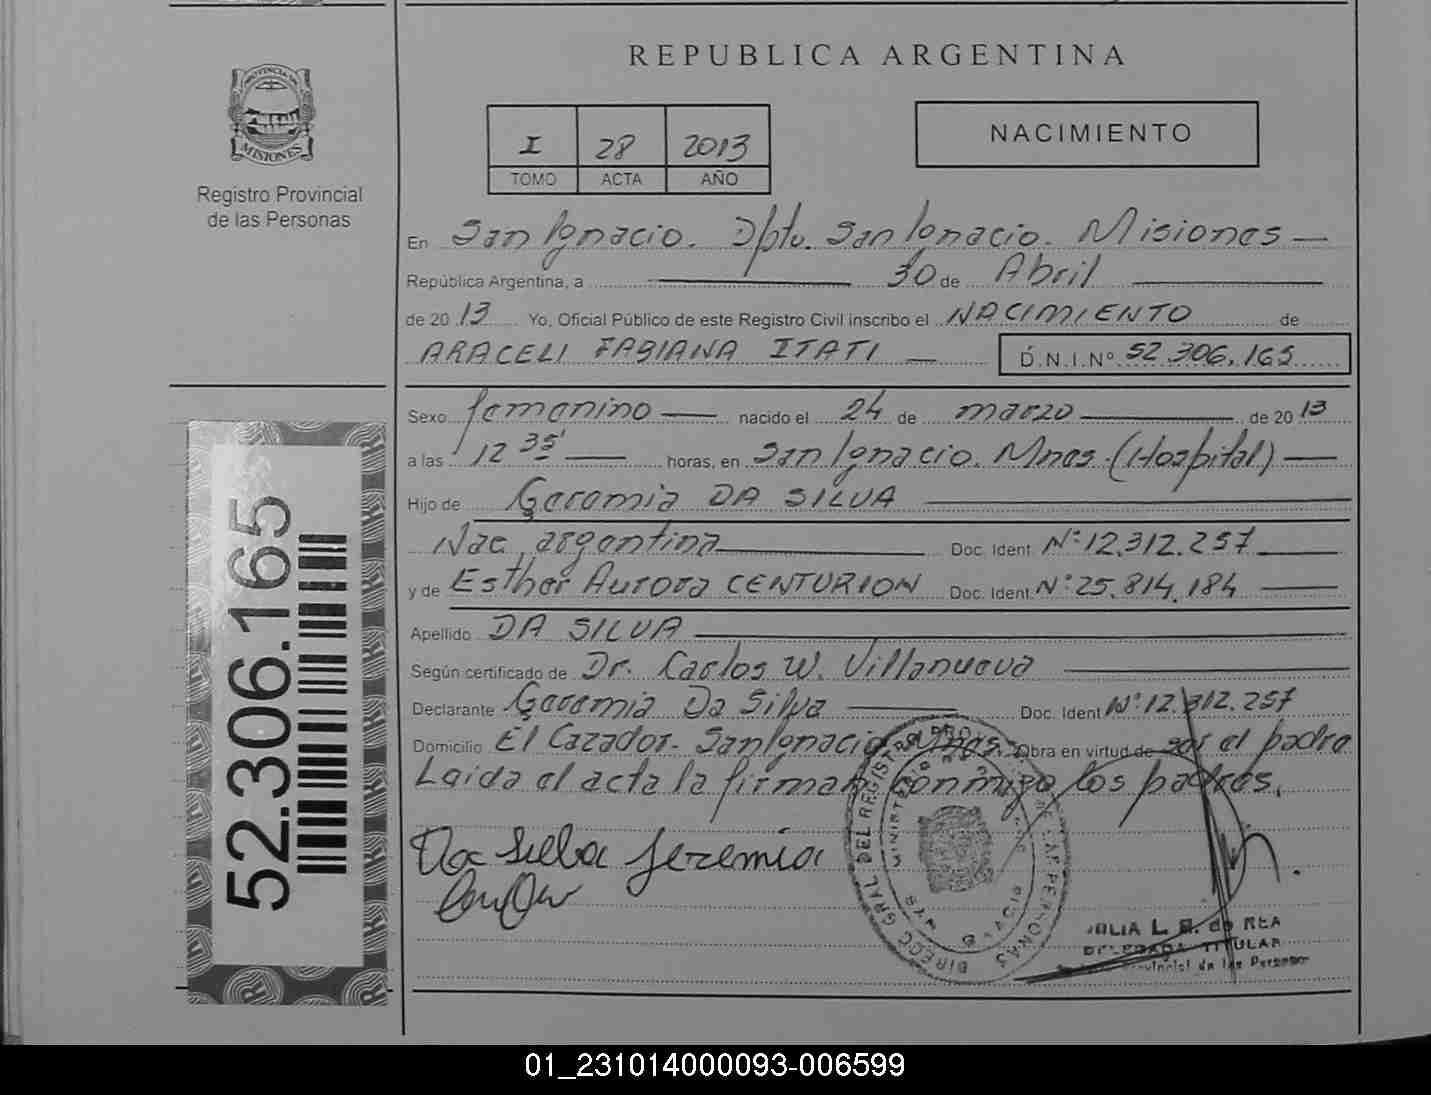 REPUBLICA ARGENTINA
PROVINCIA DE
MISIONES
Registro Provincial
de las Personas
I 28 2013
TOMO ACTA AÑO
NACIMIENTO
En San Ignacio. Dpto. San Ignacio. Misiones —
República Argentina, a 30 de Abril
de 20 13 Yo, Oficial Público de este Registro Civil inscribo el NACIMIENTO de
ARACELI FABIANA ITATI — D.N.I.Nº 52.306.165
Sexo femenino — nacido el 24 de marzo de 20 13
a las 12 35' — horas, en San Ignacio. Mnes. (Hospital) —
Hijo de Geremia DA SILVA
Nac. argentina Doc. Ident. Nº 12.312.257
y de Esther Aurora CENTURION Doc. Ident. Nº 25.814.184
Apellido DA SILVA
Según certificado de Dr. Carlos W. Villanueva
Declarante Geremia Da Silva Doc. Ident Nº 12.312.257
Domicilio El Cazador. San Ignacio Mnes. Obra en virtud de ser el padre
Leida el acta la firman conmigo los padres.
Da Silba Jeremia
DIRECC GRAL DEL REGISTRO PROV DE LAS PERSONAS
JULIA L. B. de REA
DELEGADA TITULAR
Provincial de las Personas
52.306.165
01_231014000093-006599